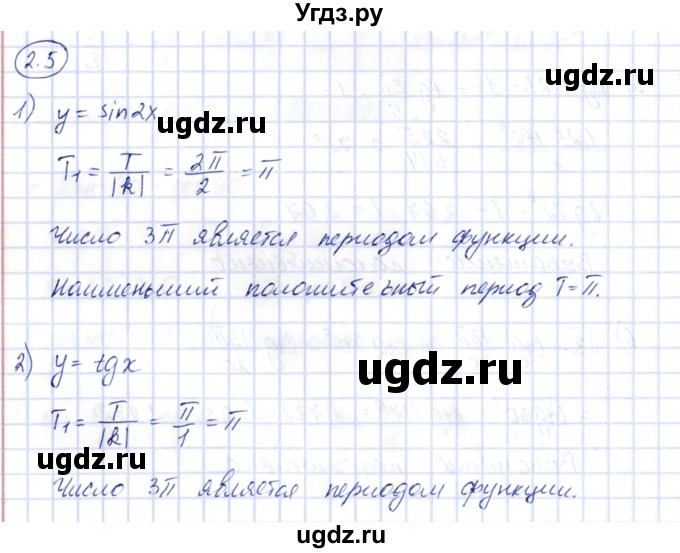 Угдз.ру
2.5
ugdz.ru
1) y = sin2x
ugdz.ru
T₁ = T/|k| = 2π/2 = π
Число 3π является периодом функции.
Наименьший положительный период T=π.
2) y = tgx
ugdz.ru
T₁ = T/|k| = π/1 = π
Число 3π является периодом функции.
ugdz.ru